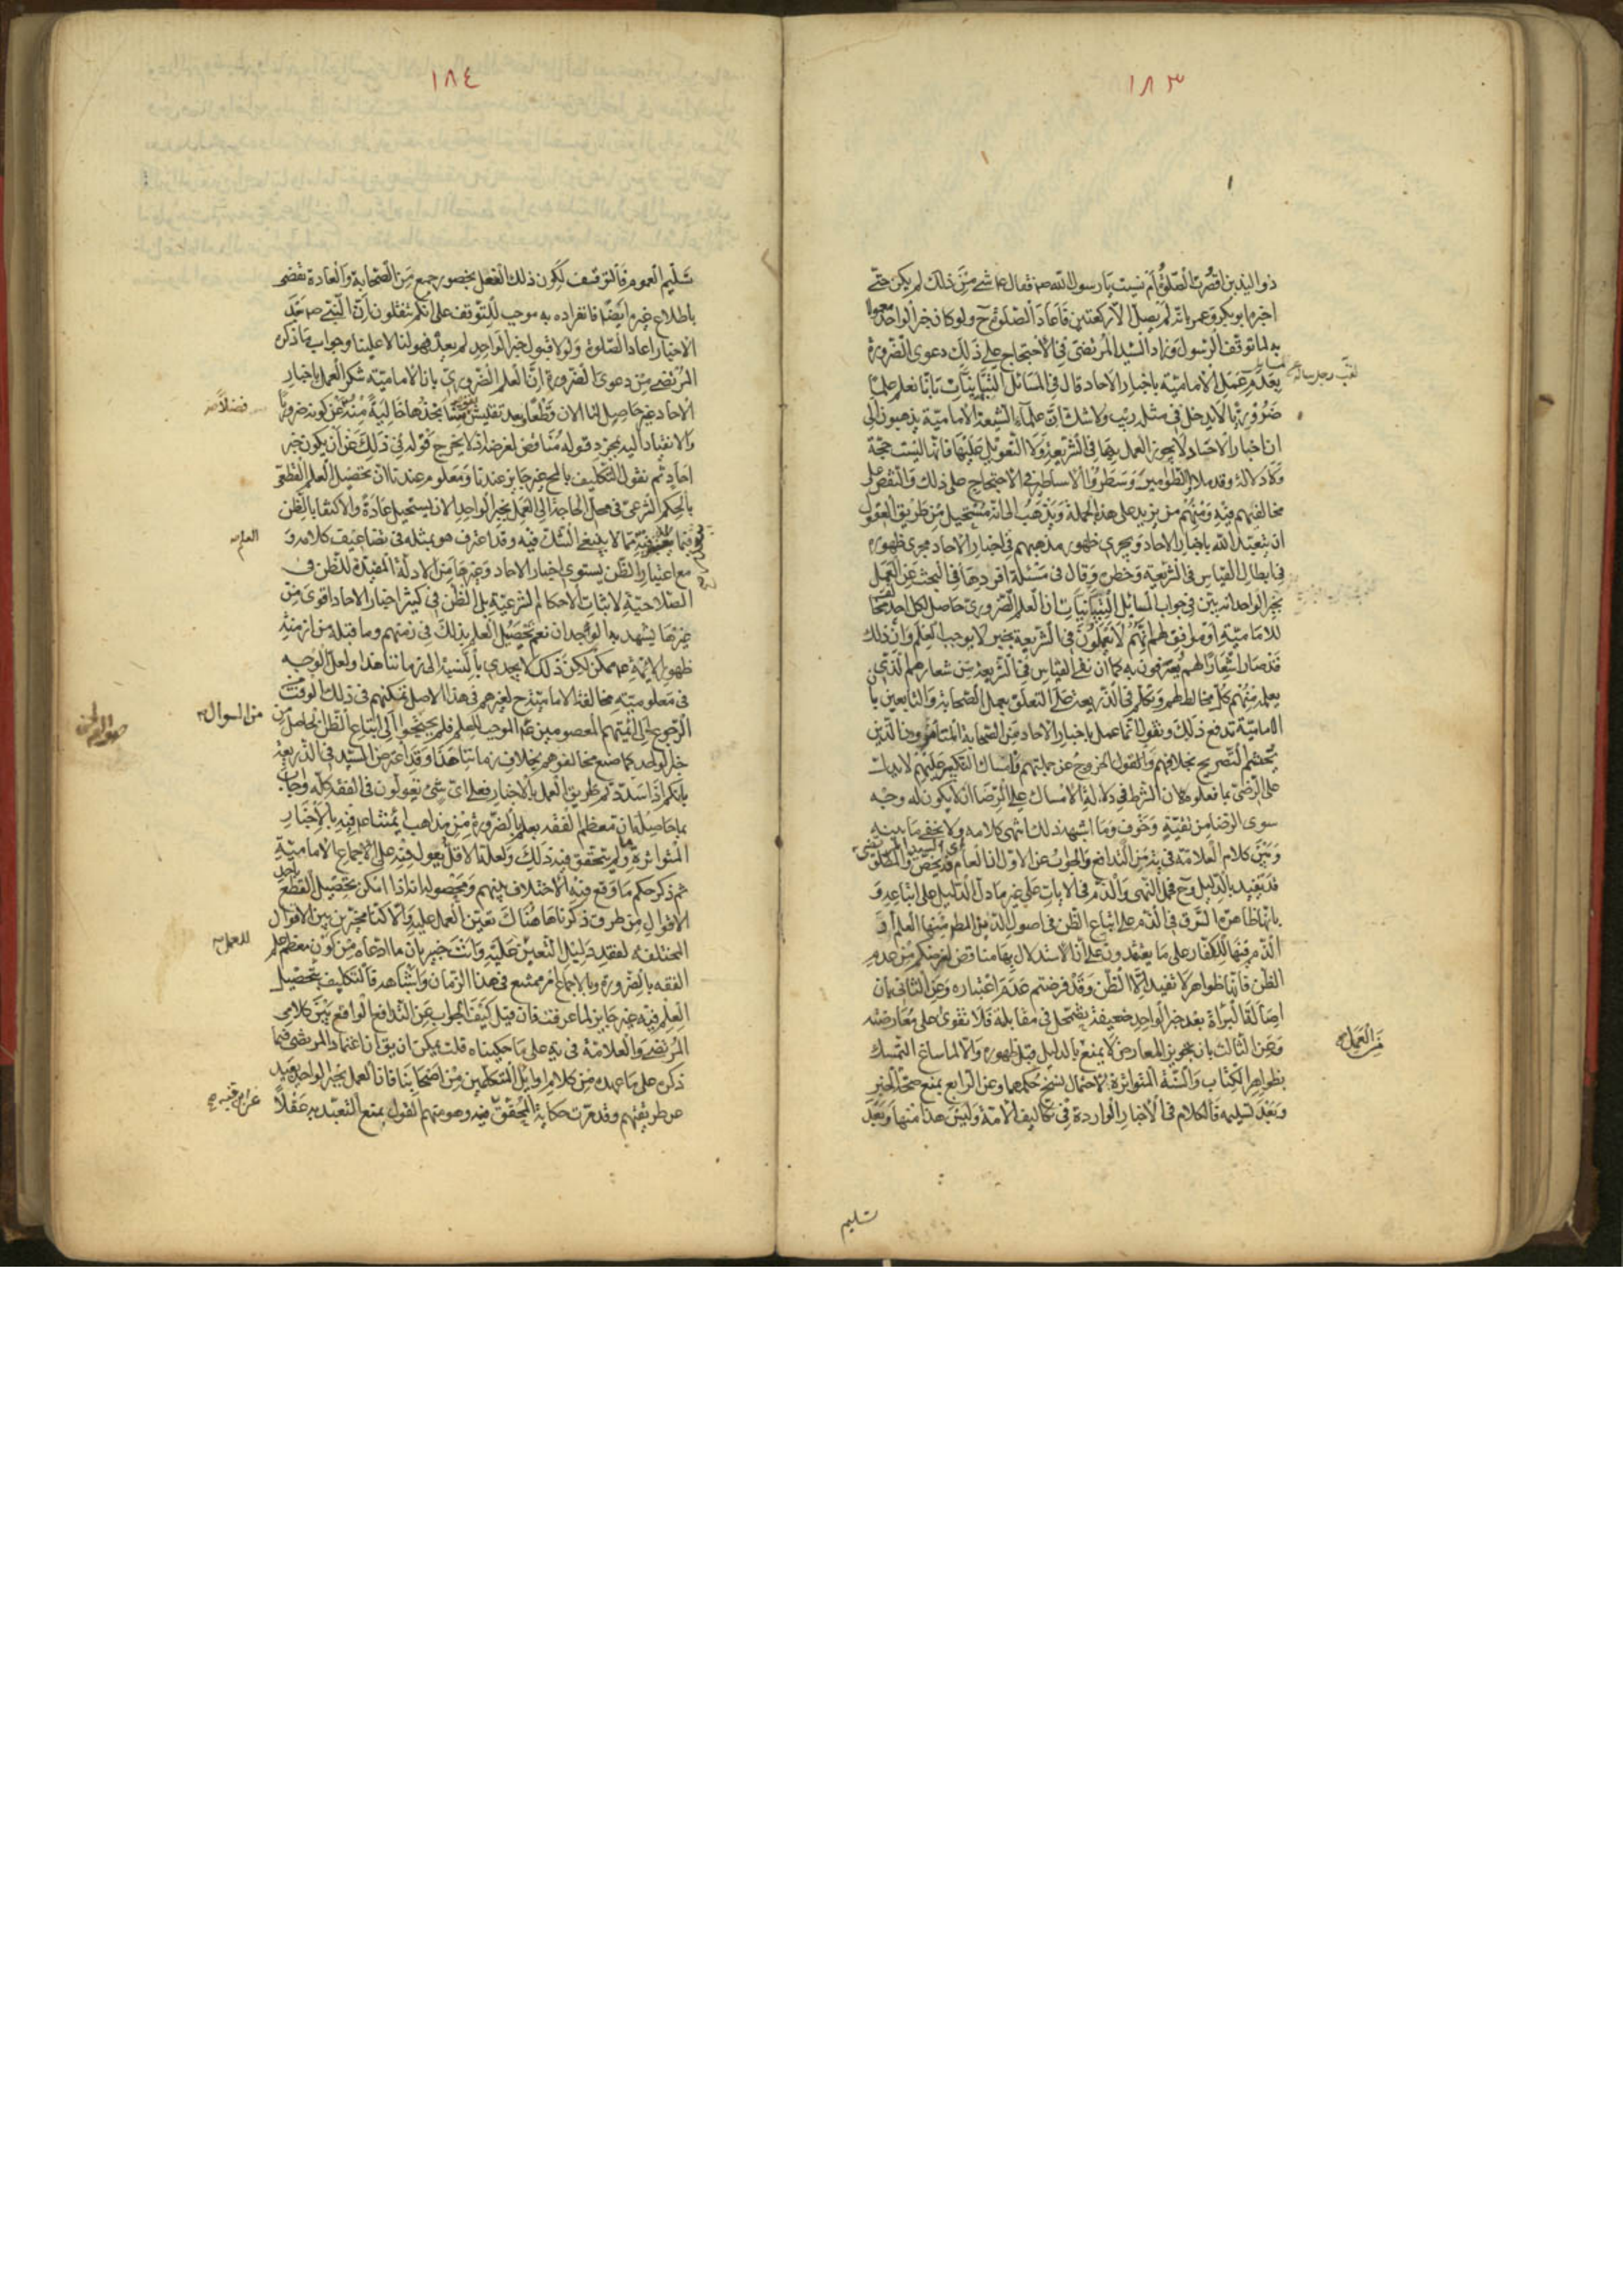 ١٨٣
ذو اليدين اقصرت الصلوة ام نسيت يا رسول الله ص فقال ع ما شئ من ذلك لم يكن حتى
اخبره ابو بكر وعمر بانه لم يصل الا ركعتين فاعاد الصلوة ح ولو كان خبر الواحد معمولا
به لما توقف الرسول وزاد السيد المرتضى في الاحتجاج على ذلك دعوى الضرورة
بعدم عمل الامامية باخبار الاحاد قال في المسائل التبانيات بانا نعلم علما
ضروريا لا يدخل في مثله ريب ولا شك ان علماء الشيعة الامامية يذهبون الى
ان اخبار الاحاد لا يجوز العمل بها في الشريعة ولا التعويل عليها فانها ليست حجة
ولا دلالة وقد ملأوا الطوامير وسطروا الاساطير في الاحتجاج على ذلك والنقض على
مخالفيهم فيه ومنهم من يزيد على هذه الجملة ويذهب الى انه مستحيل من طريق العقول
ان يتعبد الله باخبار الاحاد ويجري ظهور مذهبهم في اخبار الاحاد مجرى ظهوره
في ابطال القياس في الشريعة وخطره وقال في مسئلة افردها في البحث عن العمل
بخبر الواحد انه بين في جواب المسائل التبانيات ان العلم الضروري حاصل لكل احد مخالف
للامامية او موافق لهم بانهم لا يعملون في الشريعة بخبر لا يوجب العلم وان ذلك
قد صار شعارا لهم يعرفون به كما ان نفي القياس في الشريعة من شعارهم الذي
يعلمه منهم كل مخالط لهم وتكلم في الذريعة على التعلق بعمل الصحابة والتابعين بان
الامامية تدفع ذلك وتقول انما عمل باخبار الاحاد من الصحابة المتأمرون الذين
يحتشم التصريح بخلافهم والقول الخروج عن جملتهم وامساك النكير عليهم لا يدل
على الرضى بما فعلوه لان الشرط في دلالة الامساك على الرضا ان لا يكون له وجه
سوى الرضا من تقية وخوف وما اشبه ذلك انتهى كلامه ولا يخفى ما بينه
وبين كلام العلامة في يه من التدافع والجواب عن الاول ان العام قد يخص والمطلق
قد يقيد بالدليل وح فحمل النهى والذم في الايات على غير ما دل الدليل على اتباعه و
بانها ظاهرة السوق في الذم على اتباع الظن في اصول الدين المطلوب منها العلم او
الذم فيها للكفار على ما يعتقدون على ان الاستدلال بها مناقض لغرضكم من عدم
الظن فانها ظواهر لا تفيد الا الظن وقد فرضتم عدم اعتباره وعن الثاني بان
اصالة البرأة بعد خبر الواحد ضعيفة يضمحل في مقابله فلا تقوى على معارضته
وعن الثالث بان تجويز المعارض لا يمنع بالدليل قبل ظهوره والا لما ساغ التمسك
بظواهر الكتاب والسنة المتواترة لاحتمال نسخ حكمهما وعن الرابع بمنع صحة الخبر
وبعد تسليمه فالكلام في الاخبار الواردة في تكاليف الامة وليس هذا منها وبعد
تسليم
١٨٤
تسليم العموم فالتوقف لكون ذلك الفعل بحضور جمع من الصحابة والعادة تقضى
باطلاع غيره ايضا فانفراده به موجب للتوقف على انكم تنقلون ان النبي ص بعد
الاخبار اعاد الصلوة ولولا قبول خبر الواحد لم يعد فهو لنا لا علينا وجواب ما ذكره
المرتضى من دعوى الضرورة ان العلم الضروري بان الامامية تنكر العمل باخبار
الاحاد غير حاصل لنا الان قطعا
والانقياد اليه بمجرد قوله مناقض لغرضه اذ لا يخرج قوله في ذلك عن ان يكون خبر
احاد ثم نقول التكليف بالمح غير جايز عندنا ومعلوم عندنا ان تحصيل العلم القطعي
بالحكم الشرعي في محل الحاجة الى العمل بخبر الواحد الان يستحيل عادة والاكتفا بالظن
فيما مما لا ينبغي الشك فيه وقد اعترف هو بمثله في تضاعيف كلامه و
مع اعتبار الظن يستوي اخبار الاحاد وغيرها من الادلة المفيدة للظن في
الصلاحية لاثبات الاحكام الشرعية بل الظن في كثير اخبار الاحاد اقوى من
غيرها يشهد به الوجدان نعم تحصيل العلم بذلك في زمنهم وما قبله من ازمنة
ظهور الائمة ع ممكن لكن ذلك لا يجدي بالنسبة الى زماننا هذا ولعل الوجه
في معلومية مخالفة الامامية ح لغيرهم في هذا الاصل تمكنهم في ذلك الوقت من
الرجوع الى ائمتهم المعصومين ع الموجب للعلم فلم يحتجوا الى اتباع الظن الحاصل من
خبر الواحد كما صنع مخالفوهم بخلاف زماننا هذا وقد اعترض السيد في الذريعة
بانكم اذا سددتم طريق العمل بالاخبار فعلى اى شئ تعولون في الفقه كله واجاب
بما حاصله ان معظم الفقه يعلم بالضرورة من مذاهب ائمتنا ع فيه بالاخبار
المتواترة وما لم يتحقق فيه ذلك ولعله الاقل يعول فيه على الاجماع الامامية
ثم ذكر حكم ما وقع فيه الاختلاف بينهم ومحصوله انه اذا امكن تحصيل القطع باحد
الاقوال من طرق ذكرناها هناك تعين العمل عليه والا كنا مخيرين بين الاقوال
المختلفة لفقد دليل التعيين عليه وانت خبير بان ما ادعاه من كون معظم علم
الفقه بالضرورة وبالاجماع امر ممتنع في هذا الزمان وابشاهه فالتكليف بتحصيل
العلم فيه غير جايز لما عرفت فان قيل كيف الجواب عن التدافع الواقع بين كلامي
المرتضى والعلامة في يه على ما حكيناه قلت يمكن ان يق ان اعتماد المرتضى فيما
ذكره على ما عهده من كلام اوايل المتكلمين من اصحابنا فان العمل بخبر الواحد بعيد
عن طريقتهم وقد مرت حكاية المحقق فيه وهو منهم القول بمنع التعبد به عقلا
فضلا
العلم
من السوال
للعمل
من العمل